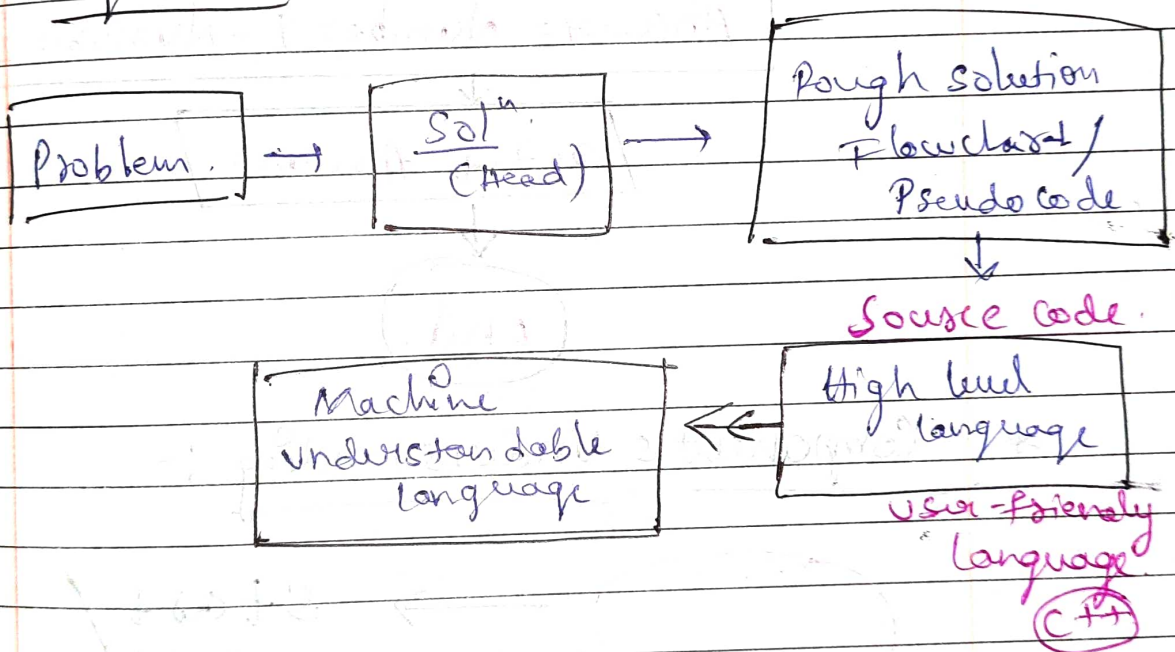 Problem.
Solⁿ.
(Head)
Rough solution
Flowchart/
Pseudo code
Source code.
High level
language
User-friendly
language
C++
Machine
understandable
language